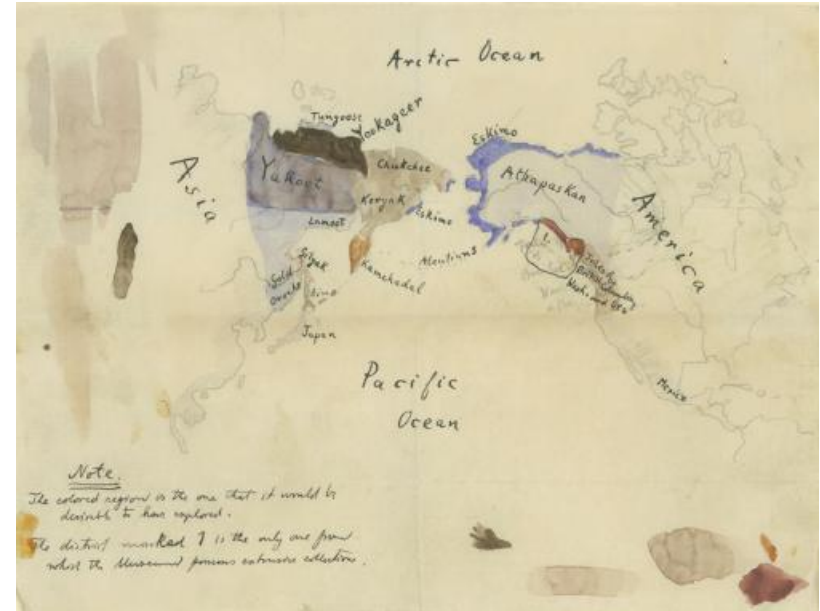 Arctic Ocean
Tungoose
Yookageer
Eskimo
Asia
Yakoot
Chukchee
Athapaskan
America
Koryak
Eskimo
Lamoot
1.
Gilyak
Aleutians
Kamchadal
Gold
Ainu
Japan
Mexico
Pacific
Ocean
Note.
The colored region is the one that it would be
desirable to have explored.
The district marked 1 is the only one from
which the Museum possesses extensive collections.